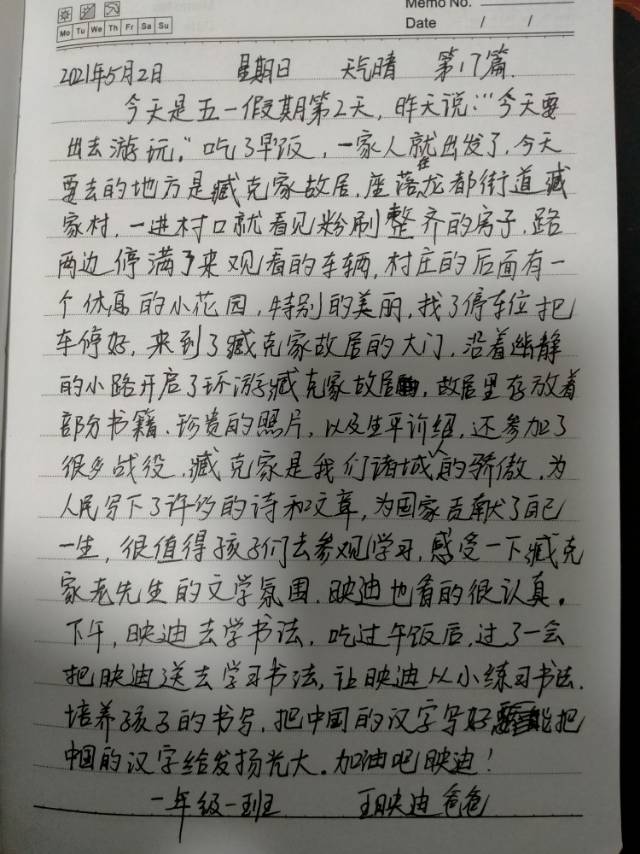 Memo No.
Mo Tu We Th Fr Sa Su
Date / /
2021年5月2日 星期日 天气晴 第17篇.
今天是五一假期第2天，昨天说：“今天要
出去游玩。”吃了早饭，一家人就出发了，今天
要去的地方是臧克家故居，座落在龙都街道臧
家村，一进村口就看见粉刷整齐的房子，路
两边停满了来观看的车辆，村庄的后面有一
个休息的小花园，特别的美丽，找了停车位把
车停好，来到了臧克家故居的大门，沿着幽静
的小路开启了环游臧克家故居，故居里存放着
部分书籍、珍贵的照片，以及生平介绍，还参加了
很多战役，臧克家是我们诸城人的骄傲，为
人民写下了许多的诗和文章，为国家贡献了自己
一生，很值得孩子们去参观学习，感受一下臧克
家老先生的文学氛围，映迪也看的很认真。
下午，映迪去学书法，吃过午饭后，过了一会
把映迪送去学习书法，让映迪从小练习书法，
培养孩子的书写，把中国的汉字写好，能把
中国的汉字给发扬光大。加油吧映迪！
一年级一班 王映迪爸爸